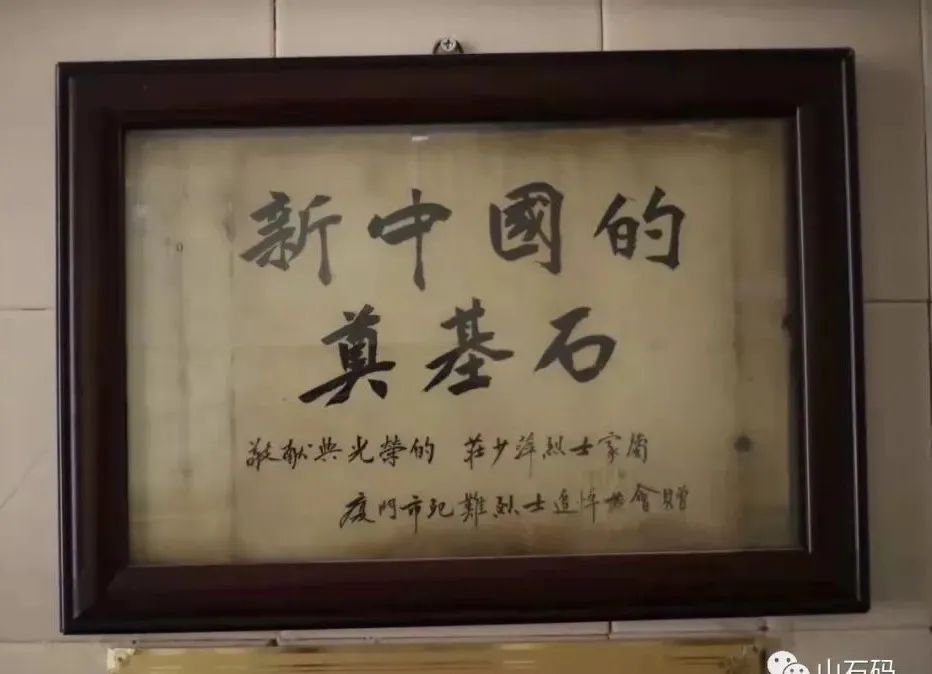 新中國的
奠基石
敬献與光榮的 莊少萍烈士家屬
厦門市死難烈士追悼大會贈
山石码